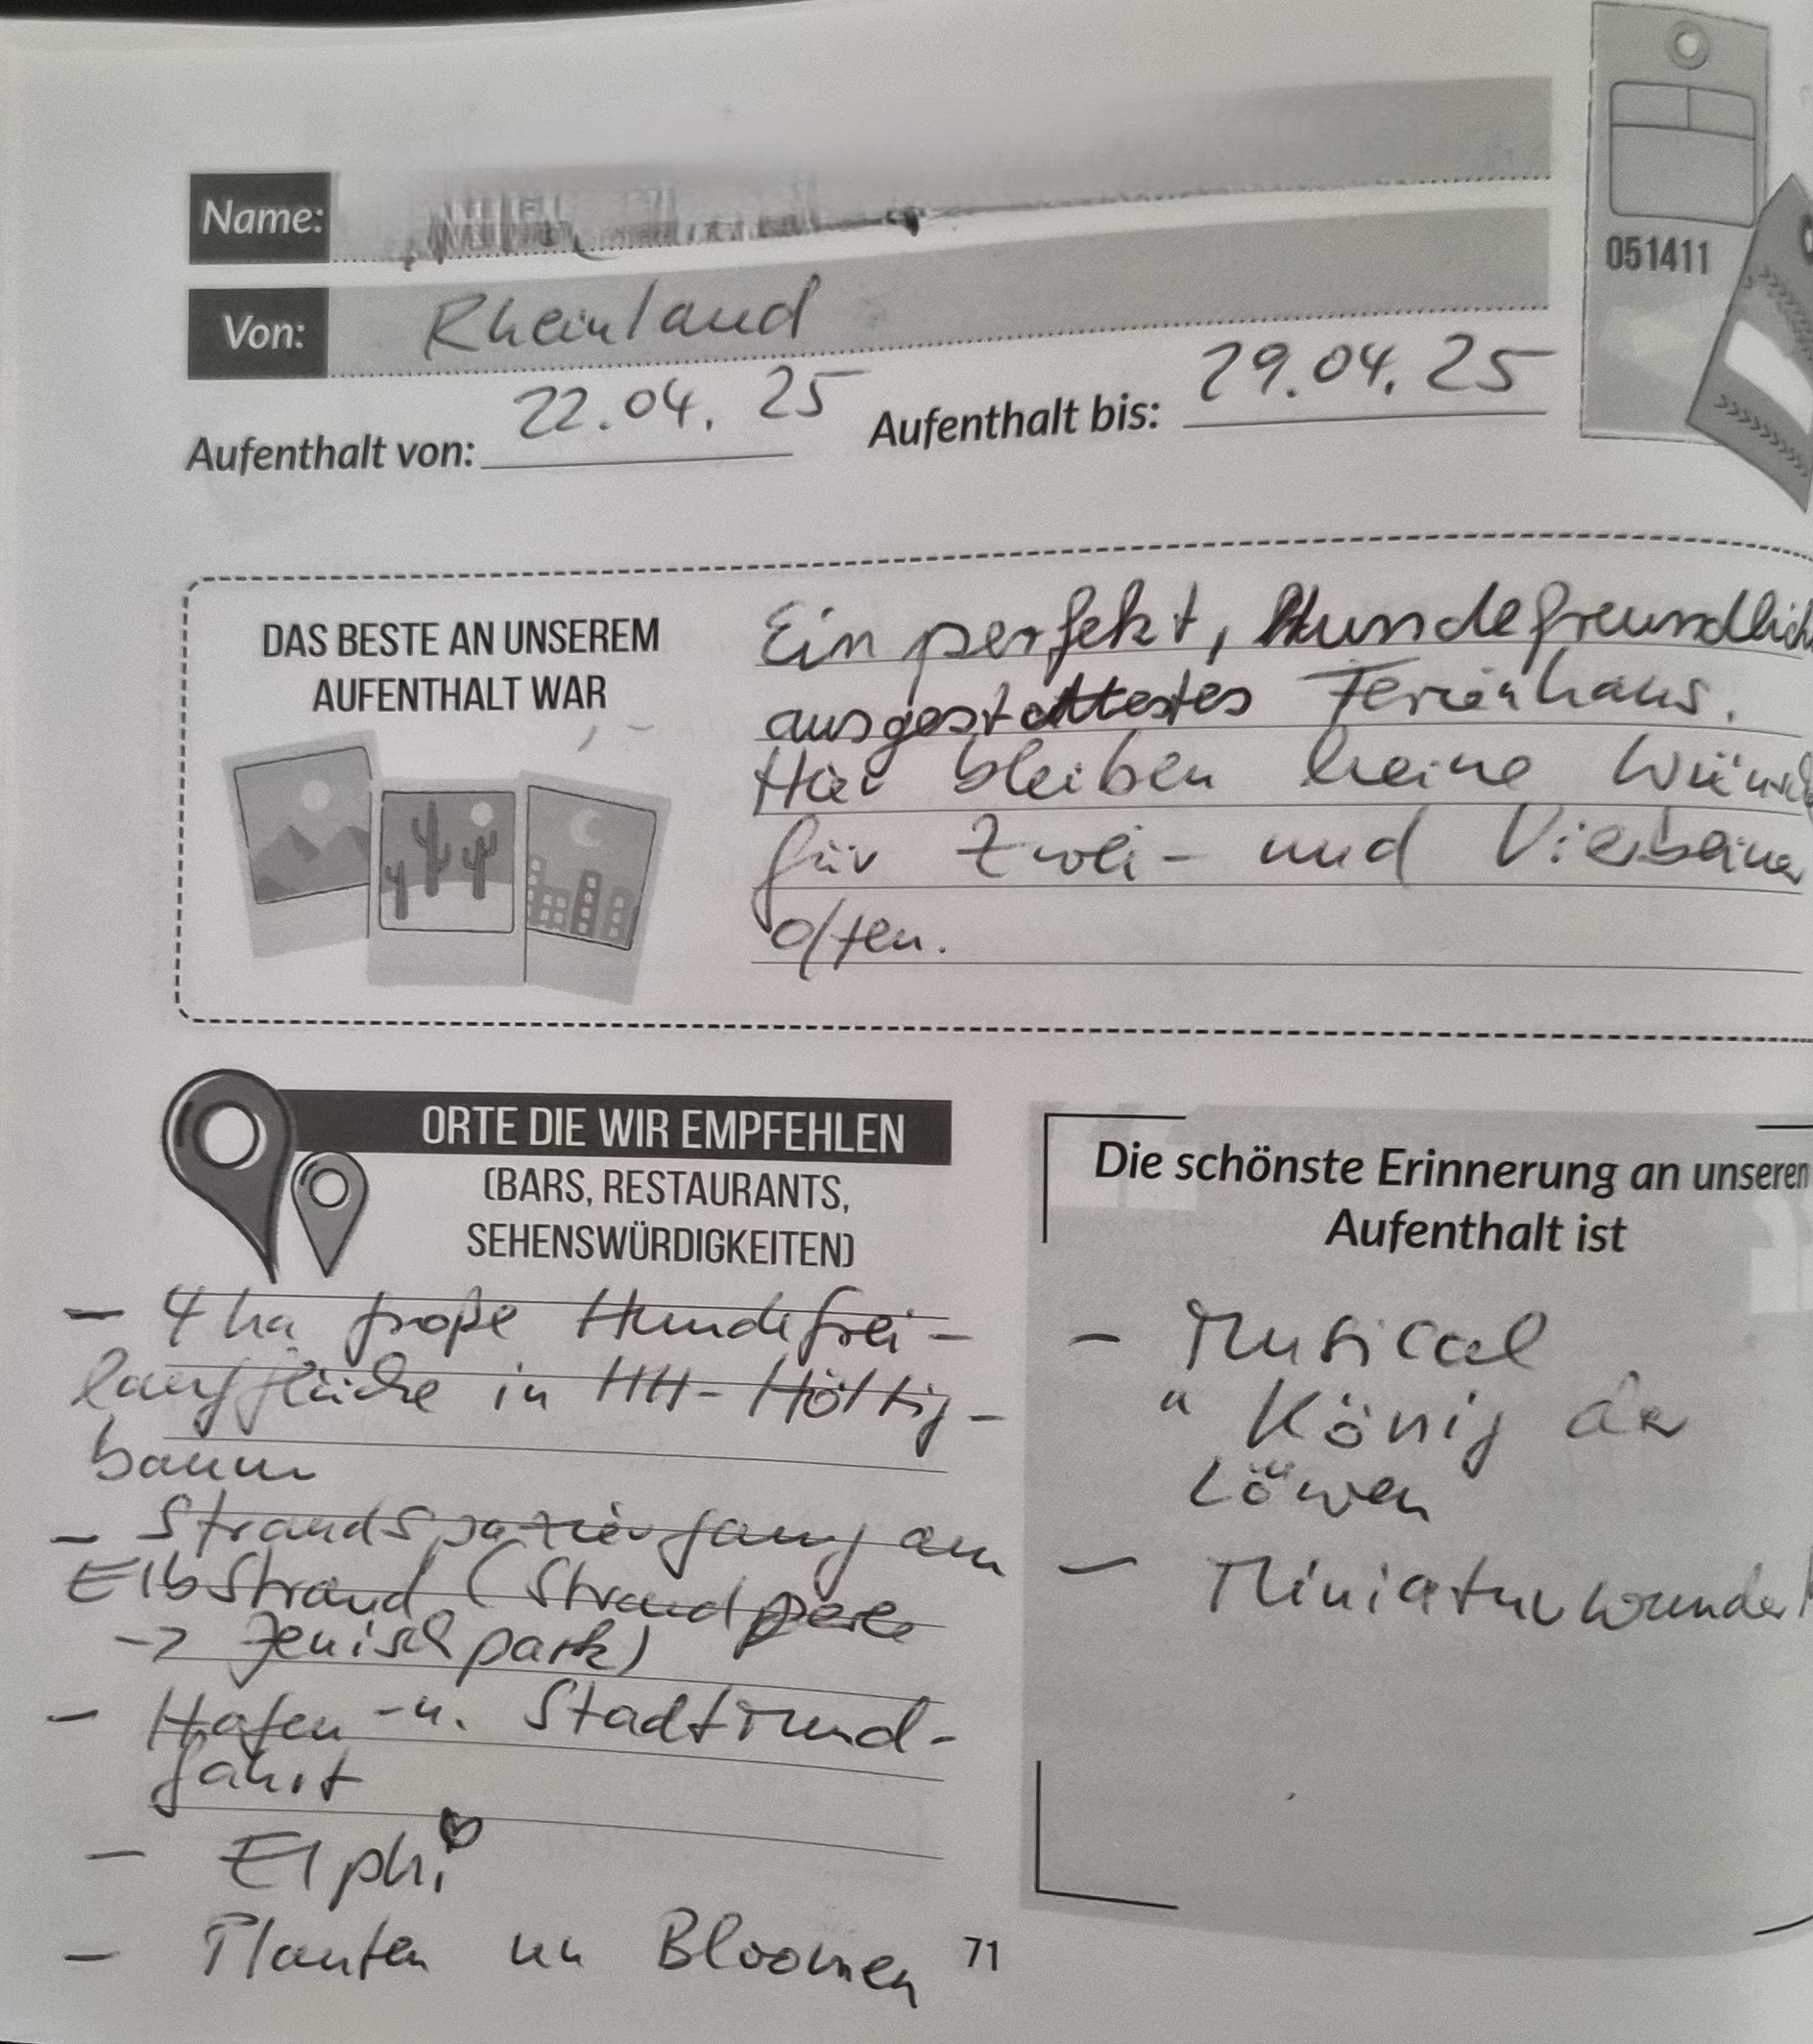 Name:
Von: Rheinland
Aufenthalt von: 22.04.25 Aufenthalt bis: 29.04.25
051411
DAS BESTE AN UNSEREM
AUFENTHALT WAR
Ein perfekt, Hundefreundlich
ausgestattetes Ferienhaus.
Hier bleiben keine Wünsch
für Zwei- und Vierbeiner
offen.
ORTE DIE WIR EMPFEHLEN
(BARS, RESTAURANTS,
SEHENSWÜRDIGKEITEN)
- 4 ha große Hundefrei-
lauffläche in HH-Höltig-
baum
- Strandspaziergang am
Elbstrand (Strandperle
-> Jenischpark)
- Hafen -u. Stadtrund-
fahrt
- Elphi
- Planten un Bloomen
Die schönste Erinnerung an unseren
Aufenthalt ist
- Musical
" König der
Löwen"
- Miniaturwunderl
71